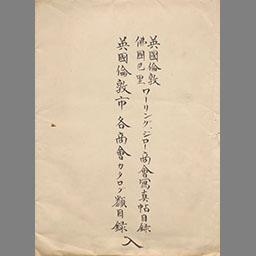 英國倫敦
佛國巴里
ワーリング、ジロー商會寫真帖目録
英國倫敦市各商會カタログ類目録
入